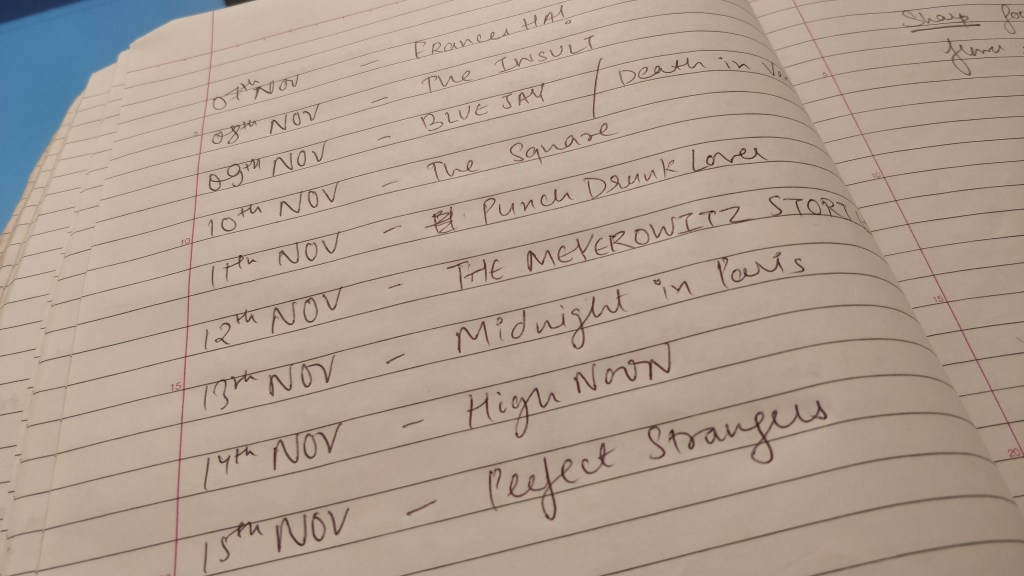 07th NOV - Frances HA!
08th NOV - The INSULT
09th NOV - BLUE JAY / Death in
10th NOV - The Square
11th NOV - Punch Drunk Lover
12th NOV - THE MEYEROWITZ
13th NOV - Midnight in Paris
14th NOV - High NOON
15th NOV - Perfect Strangers
Sharp
5
10
15
15
20